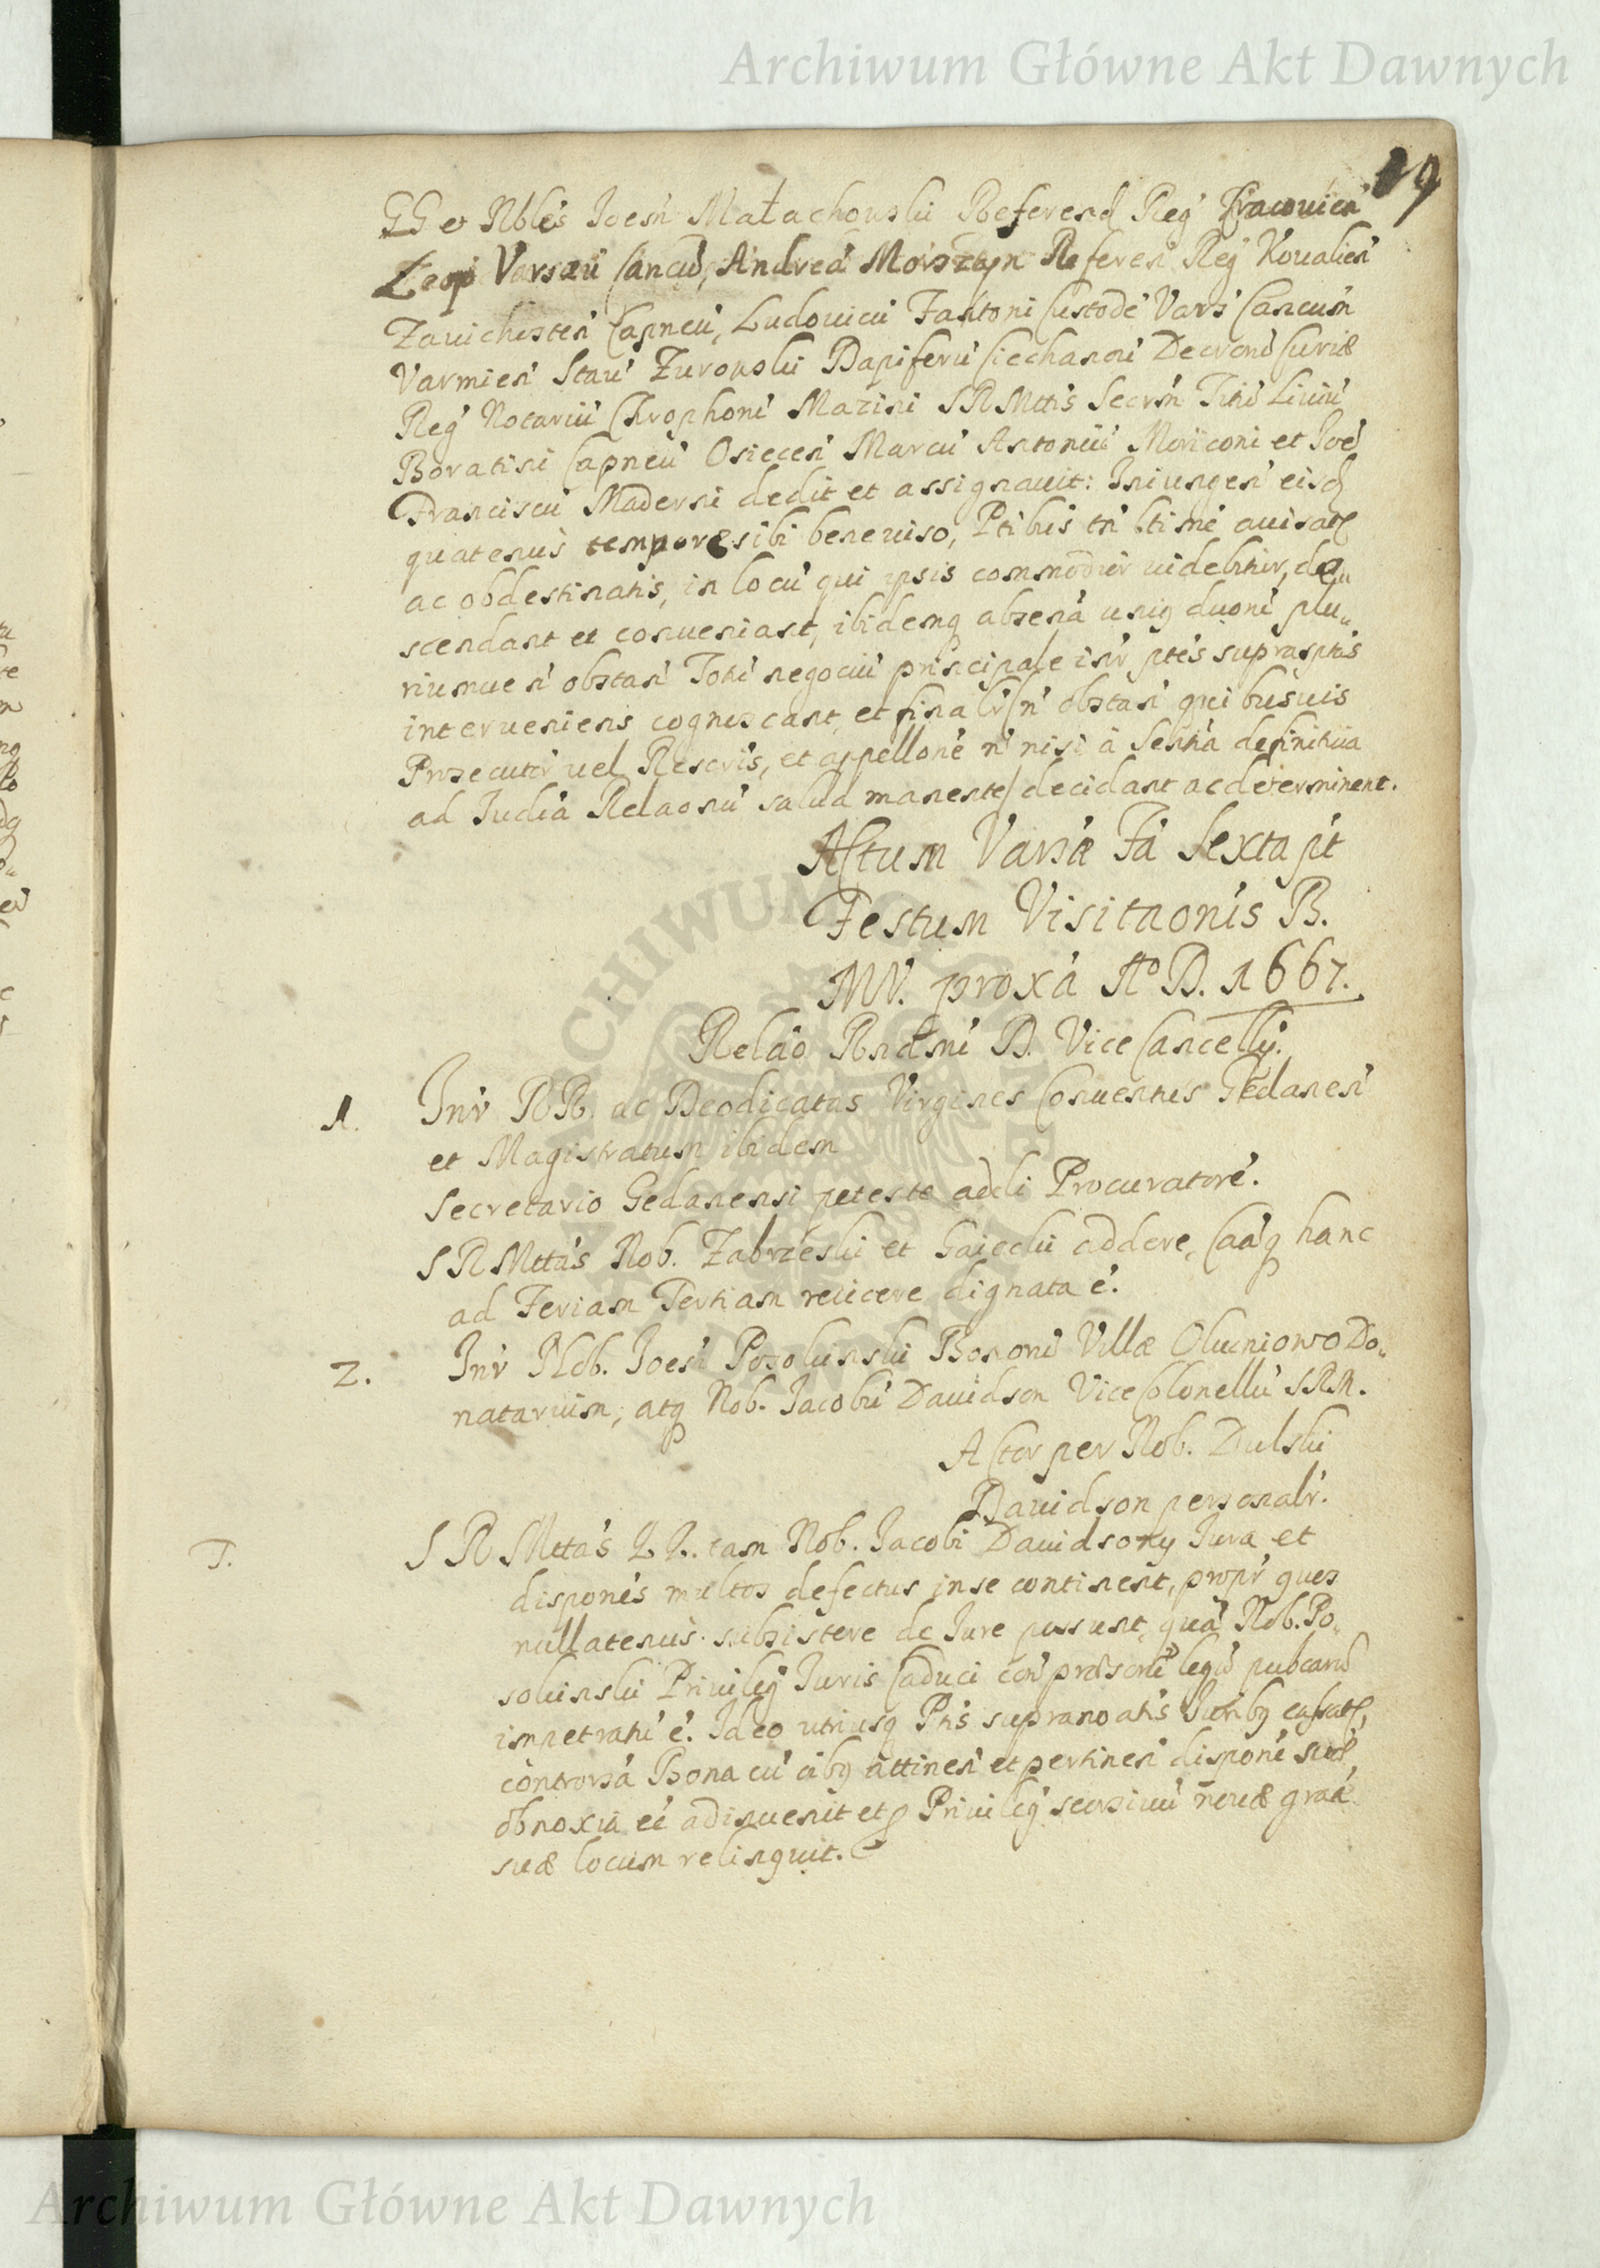 Archiwum Główne Akt Dawnych
19
GG et Nbles Joesn Małachowski Referend Reg Cracovien
Varsau Cancu, Andrea Morsztyn Referen Reg Kovalien
Zavichosten Capneu, Ludouicu Fantoni Custode Vars Cancum
Varmien Stau Zurowski Dapiferu Ciechanou Decronu Curiæ
Reg Notariu Chrophoru Mazini SRMttis Secrm Titu Liuiu
Boratini Capneu Osiecen Marcu Antoniu Moriconi et Joe
Franciscu Maderni dedit et assignauit: Iniungen eisd
quatenus tempore sibi beneuiso, Ptibus tn ltime auisat
ac obdestinatis, in locu qui ipsis commodior uidebitur, de„
scendant et conueniant, ibidemq absena unig duoru plu„
riumue n obstan Totu negociu principale intr ptes suprasptas
interueniens cognoscant, et finalr (n obstan quibusuis
Prosecutor uel Rescris, et appellone n nisi à Sentia definitiua
ad Judia Relaonu salua manente) decidant ac determinent.
Actum Varsæ Fa Sexta pt
Festum Visitaonis B.
MV. proxa Ao D. 1667.
Relao Rndmi D. Vice Cancelly.
1. Intr RR. ac Deodicatas Virgines Conuentus Gedanen
et Magistratum ibidem
Secretario Gedanensi petente addi Procuratore.
SRMttas Nob. Zabrzeski et Gaiecki addere, Caaq hanc
ad Feriam Tertiam reiicere dignata e.
2. Intr Nob. Joen Posoluinski Bonoru Villæ Olucniowo Do„
natarium, atq Nob. Jacobu Dauidson Vice Colonellu SRM.
Actor per Nob. Dulski
Dauidson personalr.
T. SRMttas tam Nob. Jacobi Dauidsony Jura et
dispones multos defectus in se continent, proptr quos
nullatenus subsistere de Jure possunt, qua Nob. Po„
soluinski Priuileg Juris Caduci con legu pubcaru
impetratu e. Ideo utriusq Ptis supranoatis Juribq cassat,
controrsa Bona cu oibq attinen et pertinen dispone suæ
obnoxia ee adinuenit et Priuileg seorsiuu nouæ graæ
suæ locum relinquit.
Archiwum Główne Akt Dawnych